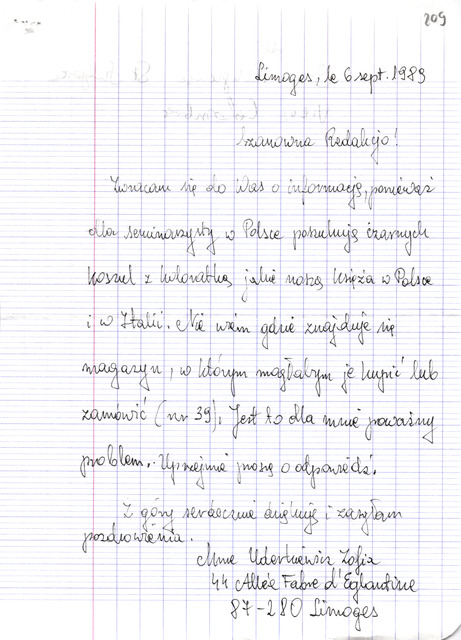 209
Limoges, le 6 sept. 1989
Szanowna Redakcjo!
Zwracam się do Was o informację, ponieważ
dla seminarzysty w Polsce poszukuję czarnych
koszul z koloratką jakie noszą księża w Polsce
i w Italii. Nie wiem gdzie znajduje się
magazyn, w którym mogłabym je kupić lub
zamówić (nr 39). Jest to dla mnie poważny
problem. Uprzejmie proszę o odpowiedź.
Z góry serdecznie dziękuję i zasyłam
pozdrowienia.
Mme Zofia
44 Allée Fabre d'Eglantine
87-280 Limoges